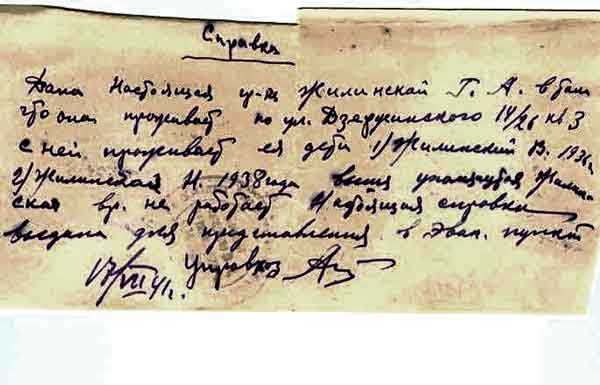 Справка
Дана Настоящая гр-ке Жилинской Г. А. в том
что она проживает по ул. Дзержинского 14/26 кв 3
с ней проживает ея дети 1/Жилинский В. 1936г
2/Жилинская Н. 1938 года выше упомянутая Жилин-
ская вр. не работает Настоящая справка
выдана для представления в Эвак. пункт
17/VII 41г. Управхоз